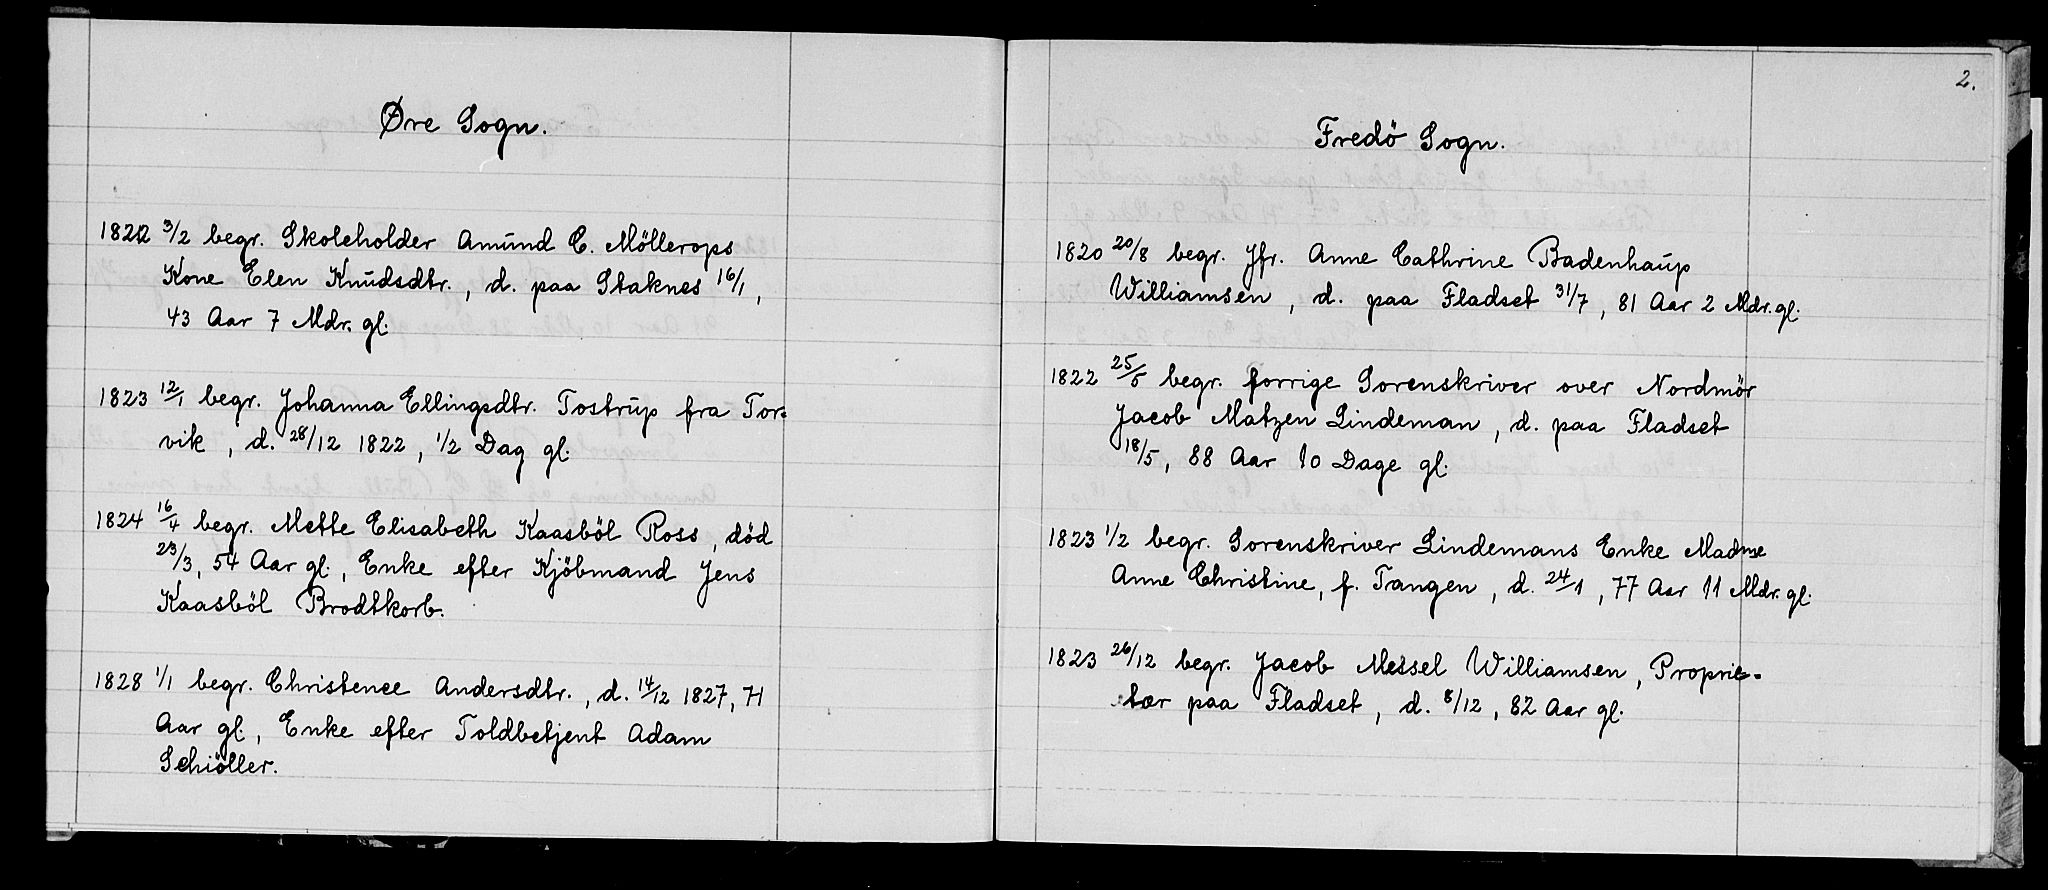 Øre Sogn.
1822 3/2 begr. Skoleholder Amund C. Möllerops
Kone Elen Knudsdtr., d. paa Staknes 16/1,
43 Aar 7 Mdr. gl.
1823 12/1 begr. Johanna Ellingsdtr. Tostrup fra Tor=
vik, d. 28/12 1822, 1/2 Dag gl.
1824 16/4 begr. Mette Elisabeth Kaasböl Ross, död
23/3, 54 Aar gl., Enke efter Kjöbmand Jens
Kaasböl Brodtkorb.
1828 1/1 begr. Christence Andersdtr., d. 14/12 1827, 71
Aar gl., Enke efter Toldbetjent Adam
Schiöller.
2.
Fredö Sogn.
1820 20/8 begr. Jfr. Anne Cathrine Badenhaup
Williamsen, d. paa Fladset 31/7, 81 Aar 2 Mdr. gl.
1822 25/5 begr. forrige Sorenskriver over Nordmör
Jacob Matzen Lindeman, d. paa Fladset
18/5, 88 Aar 10 Dage gl.
1823 1/2 begr. Sorenskriver Lindemans Enke Madme
Anne Christine, f. Tangen, d. 24/1, 77 Aar 11 Mdr. gl.
1823 26/12 begr. Jacob Messel Williamsen, Proprie=
tær paa Fladset, d. 8/12, 82 Aar gl.